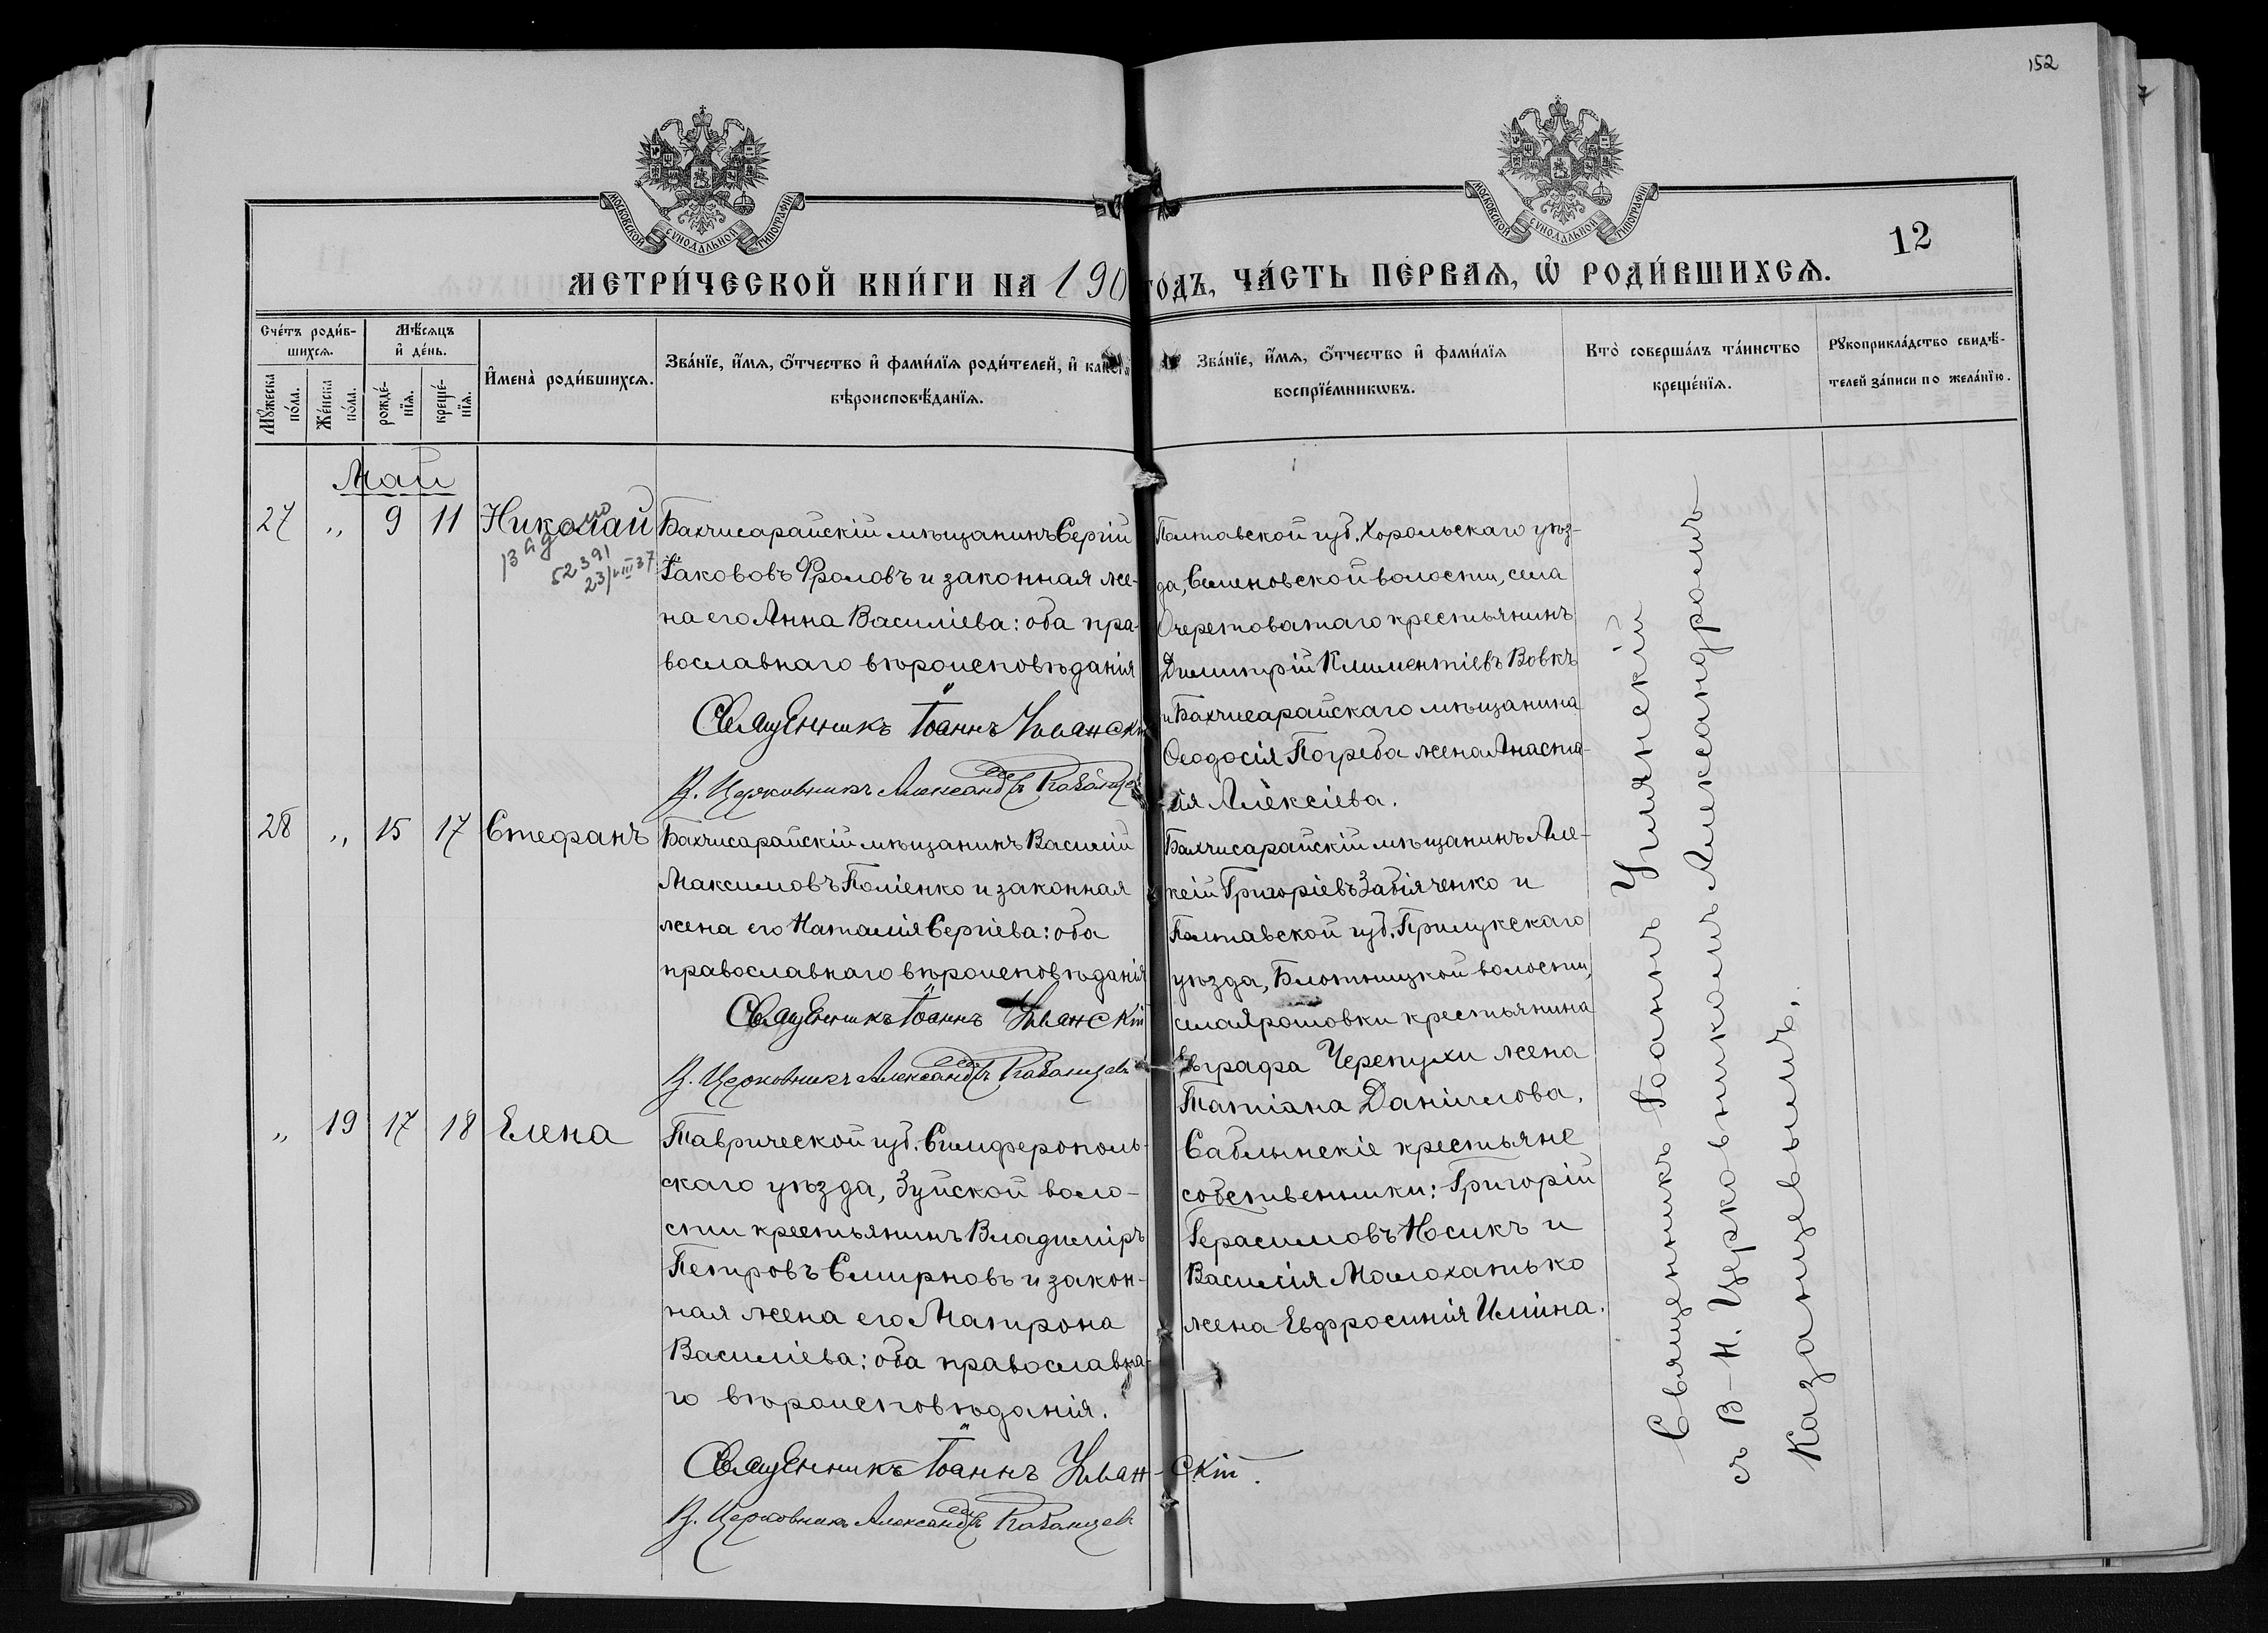 152
МОСКОВСКОЙ СѴНОДАЛЬНОЙ ТИПОГРАФІИ
МОСКОВСКОЙ СѴНОДАЛЬНОЙ ТИПОГРАФІИ
12
МЕТРИ́ЧЕСКОЙ КНИ́ГИ НА 190 го́дъ, ЧА́СТЬ ПЕ́РВАѦ, Ѿ РОДИ́ВШИХСѦ.
Сче́тъ роди́в-
шихсѧ.
Мѣ́сѧцъ
и҆ де́нь.
Мꙋ́жеска
по́ла.
Же́нска
по́ла.
рожде́-
нїѧ.
креще́-
нїѧ.
И҆мена̀ роди́вшихсѧ.
Зва́нїе, и҆́мѧ, ѻ҆́тчество и҆ фами́лїѧ роди́телей, и҆ како́гѡ
вѣроисповѣ́данїѧ.
Зва́нїе, и҆́мѧ, ѻ҆́тчество и҆ фами́лїѧ
воспрїе́мникѡвъ.
Кто̀ соверша́лъ та́инство
креще́нїѧ.
Рꙋкоприкла́дство свидѣ́-
телей за́писи по жела́нїю.
Май
27 „ 9 11 Николай
52391
23/VIII 37
Бахчисарайскій мѣщанинъ Сергій
Іакововъ Фроловъ и законная же-
на его Анна Василіева: оба пра-
вославнаго вѣроисповѣданія
Священникъ Іоаннъ
Церковникъ Александръ Казанцев
Полтавской губ. Хорольскаго уѣз-
да, Семеновской волости, села
Очеретоватаго крестьянинъ
Димитрій Климентіевъ Вовкъ
и Бахчисарайскаго мѣщанина
Ѳеодосія Погреба жена Анаста-
сія Алексіева.
28 „ 15 17 Стефанъ
Бахчисарайскій мѣщанинъ Василій
Максимовъ Поліенко и законная
жена его Наталія Сергіева: оба
православнаго вѣроисповѣданія
Священникъ Іоаннъ
Церковникъ Александръ Казанцев
Бахчисарайскій мѣщанинъ Але-
ксій Григоріевъ Забіяченко и
Полтавской губ. Прилукскаго
уѣзда, Блотницкой волости,
села Ярошовки крестьянина
Евграфа Черепухи жена
Татіана Даніилова.
„ 19 17 18 Елена
Таврической губ. Симферополь-
скаго уѣзда, Зуйской воло-
сти крестьянинъ Владиміръ
Петровъ Смирновъ и закон-
ная жена его Матрона
Василіева: оба православна-
го вѣроисповѣданія.
Священникъ Іоаннъ
Церковникъ Александръ Казанцев
Саблынскіе крестьяне
собственники: Григорій
Герасимовъ Носикъ и
Василія Малохатько
жена Евфросинія Иліина.
Священникъ Іоаннъ
съ В-И. Церковникомъ Александромъ
Казанцевымъ.